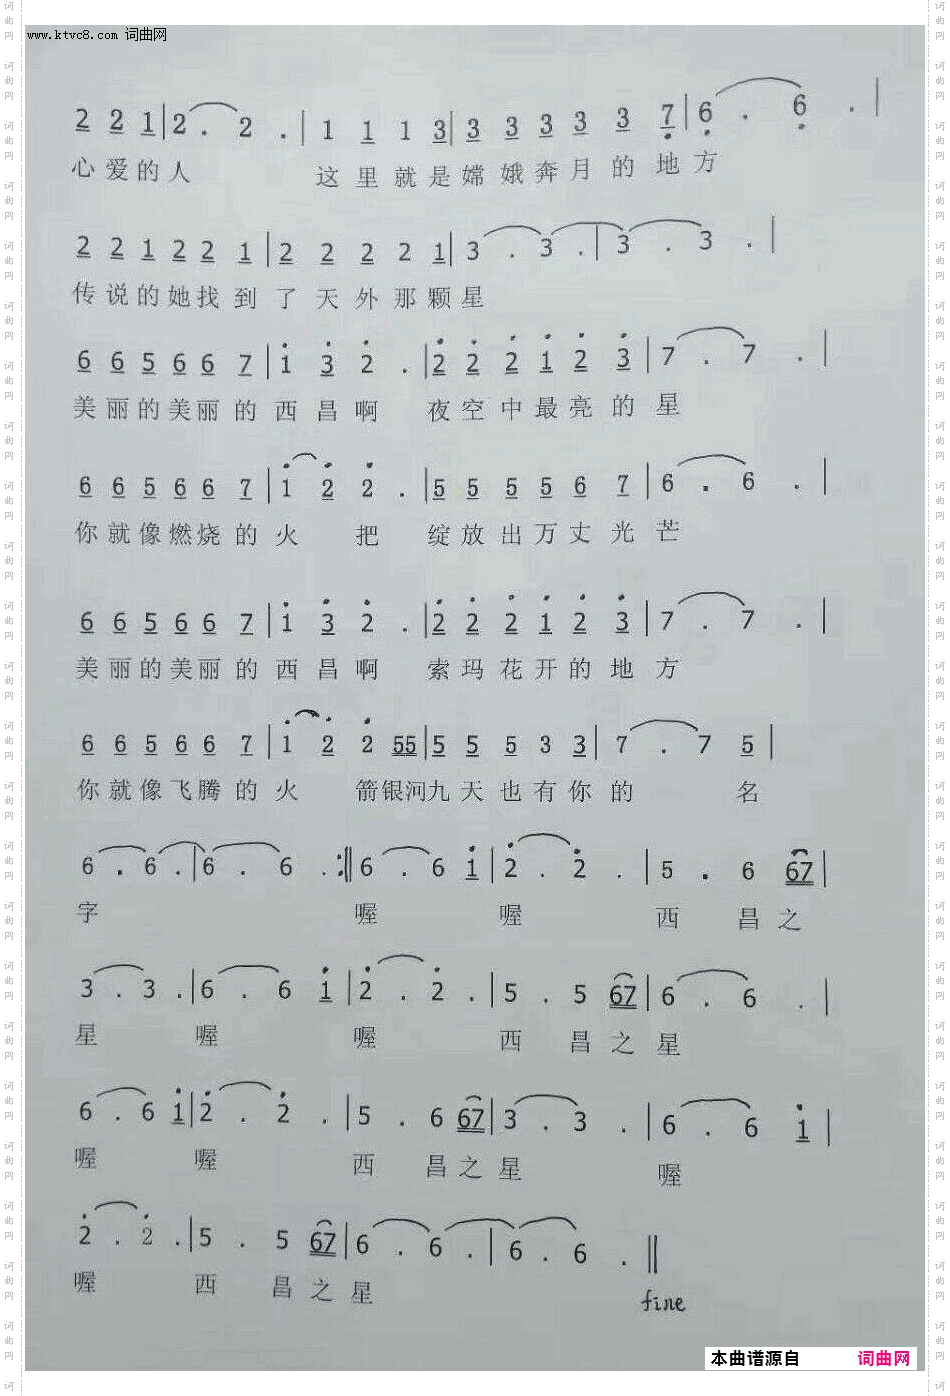 www.ktvc8.com 词曲网
2 2 1 | 2 . 2 . | 1 1 1 3 | 3 3 3 3 3 7 | 6 . 6 . |
心爱的人 这里就是嫦娥奔月的地方
2 2 1 2 2 1 | 2 2 2 2 1 | 3 . 3 . | 3 . 3 . |
传说的她找到了天外那颗星
6 6 5 6 6 7 | 1 3 2 . | 2 2 2 1 2 3 | 7 . 7 . |
美丽的美丽的西昌啊 夜空中最亮的星
6 6 5 6 6 7 | 1 2 2 . | 5 5 5 5 6 7 | 6 . 6 . |
你就像燃烧的火 把 绽放出万丈光芒
6 6 5 6 6 7 | 1 3 2 . | 2 2 2 1 2 3 | 7 . 7 . |
美丽的美丽的西昌啊 索玛花开的地方
6 6 5 6 6 7 | 1 2 2 55 | 5 5 5 3 3 | 7 . 7 5 |
你就像飞腾的火 箭银河九天也有你的 名
6 . 6 . | 6 . 6 . :|| 6 . 6 1 | 2 . 2 . | 5 . 6 67 |
字 喔 喔 西 昌之
3 . 3 . | 6 . 6 1 | 2 . 2 . | 5 . 5 67 | 6 . 6 . |
星 喔 喔 西 昌之星
6 . 6 1 | 2 . 2 . | 5 . 6 67 | 3 . 3 . | 6 . 6 1 |
喔 喔 西 昌之星 喔
2 . 2 . | 5 . 5 67 | 6 . 6 . | 6 . 6 . ||
喔 西 昌之星
fine
本曲谱源自 词曲网